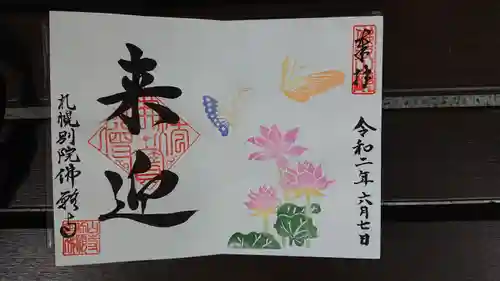 奉拝
令和二年六月七日
来迎
札幌別院佛願寺